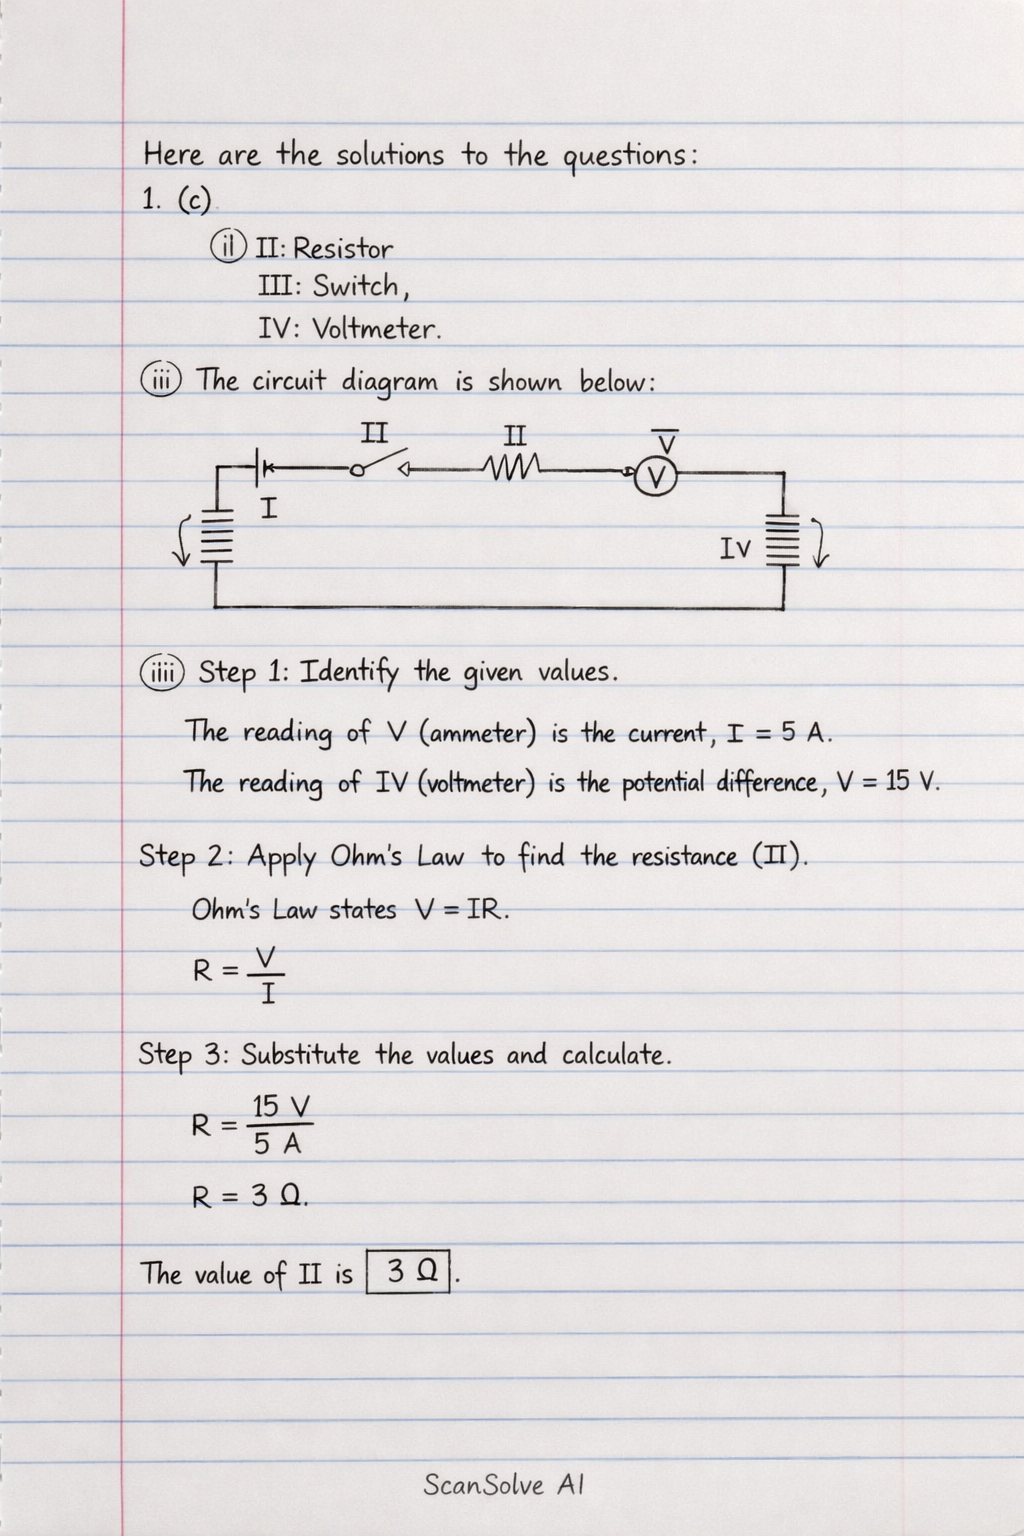 Here are the solutions to the questions:
1. (c)
(ii) II: Resistor
III: Switch,
IV: Voltmeter.
(iii) The circuit diagram is shown below:
II II V
V
I
IV
(iiii) Step 1: Identify the given values.
The reading of V (ammeter) is the current, I = 5 A.
The reading of IV (voltmeter) is the potential difference, V = 15 V.
Step 2: Apply Ohm's Law to find the resistance (II).
Ohm's Law states V = IR.
R = V / I
Step 3: Substitute the values and calculate.
R = 15 V / 5 A
R = 3 Ω.
The value of II is 3 Ω.
ScanSolve AI